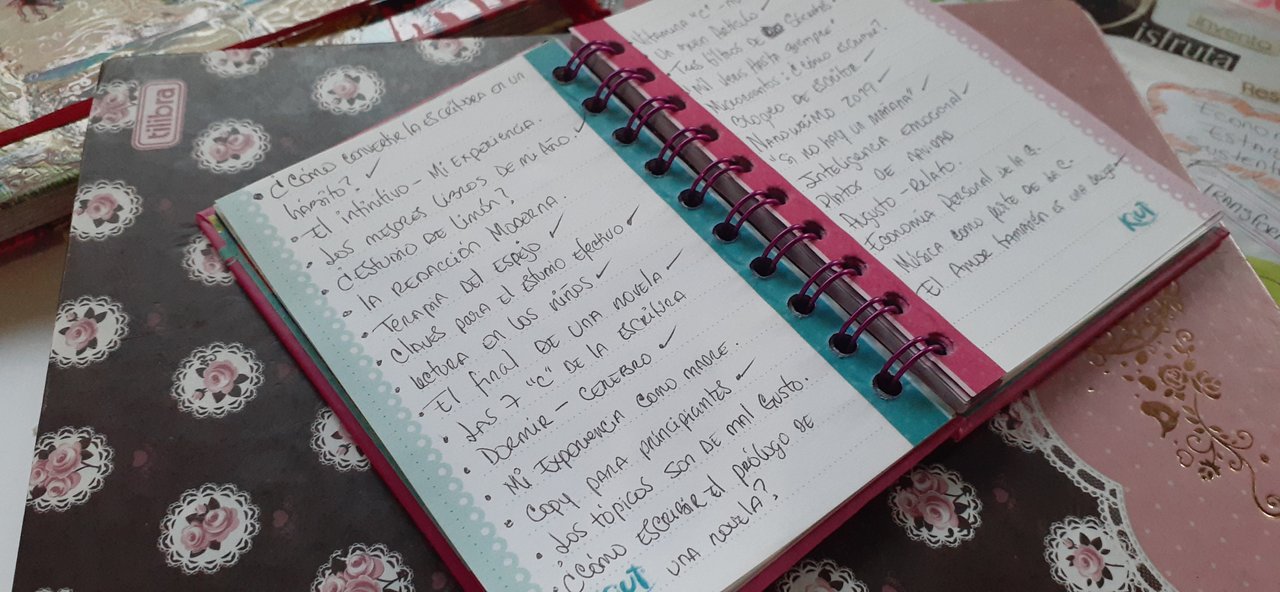 tilibra
• ¿Cómo convertir la escritura en un
hábito? ✓
• El infinitivo - Mi experiencia.
• Los mejores libros de mi Año. ✓
• ¿Estudio de limón?
• La redacción moderna.
• Terapia del Espejo ✓
• Claves para el estudio efectivo ✓
• Lectora en los niños ✓
• El final de una novela ✓
• Las 7 "C" de la escritura
• Dormir - Cerebro ✓
• Mi Experiencia como madre.
• Copy para principiantes ✓
• Los tópicos son de mal gusto.
• ¿Cómo escribir el prólogo de
una novela?
Kiut
Vitamina "C" -
Un buen
Tres filtros de Sócrates
hasta siempre"
Micro : ¿Cómo escribir?
Blogueo de escritor ✓
Nanowrimo 2019 ✓
"Si no hay un mañana" ✓
Inteligencia emocional ✓
Platos de navidad
Augusto - Relato.
Economía Personal de la C.
Música como parte de la C.
El Amor también es una
Kiut
Invento
isfruta
Res
Econo
Transfo